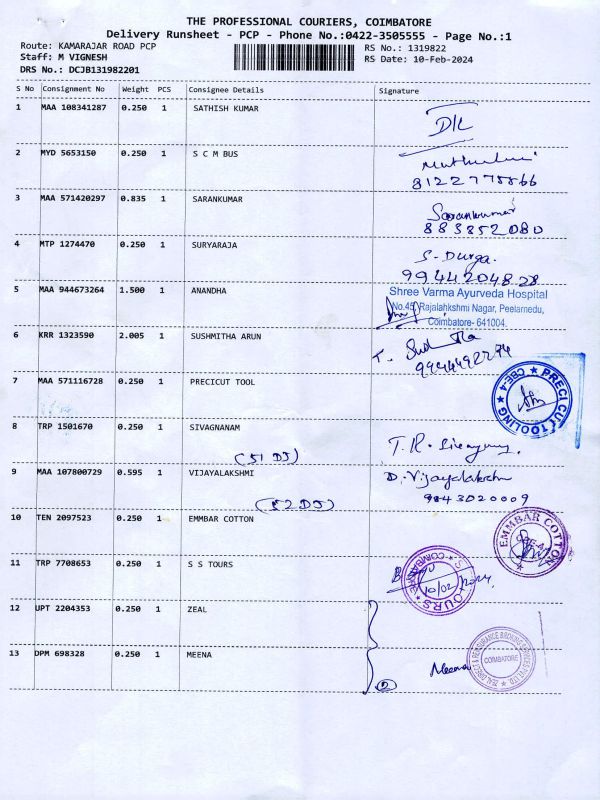 THE PROFESSIONAL COURIERS, COIMBATORE
Delivery Runsheet - PCP - Phone No.:0422-3505555 - Page No.:1
Route: KAMARAJAR ROAD PCP RS No.: 1319822
Staff: M VIGNESH RS Date: 10-Feb-2024
DRS No.: DCJB131982201
S No Consignment No Weight PCS Consignee Details Signature
1 MAA 108341287 0.250 1 SATHISH KUMAR
2 MYD 5653150 0.250 1 S C M BUS
8122775866
3 MAA 571420297 0.835 1 SARANKUMAR
Sarankumar
883852080
4 MTP 1274470 0.250 1 SURYARAJA
S. Durga.
9944204828
5 MAA 944673264 1.500 1 ANANDHA
Shree Varma Ayurveda Hospital
No.45, Rajalahkshmi Nagar, Peelamedu,
Coimbatore- 641004.
6 KRR 1323590 2.005 1 SUSHMITHA ARUN
9944492274
7 MAA 571116728 0.250 1 PRECICUT TOOL
PRECICUT TOOLING
CBE-4
8 TRP 1501670 0.250 1 SIVAGNANAM
(51 DJ)
9 MAA 107800729 0.595 1 VIJAYALAKSHMI
D. Vijayalakshmi
9843020009
(52 DJ)
10 TEN 2097523 0.250 1 EMMBAR COTTON
EMMBAR COTTON
11 TRP 7708653 0.250 1 S S TOURS
COIMBATORE
10/02/2024
12 UPT 2204353 0.250 1 ZEAL
13 DPM 698328 0.250 1 MEENA
Meena
COIMBATORE
2